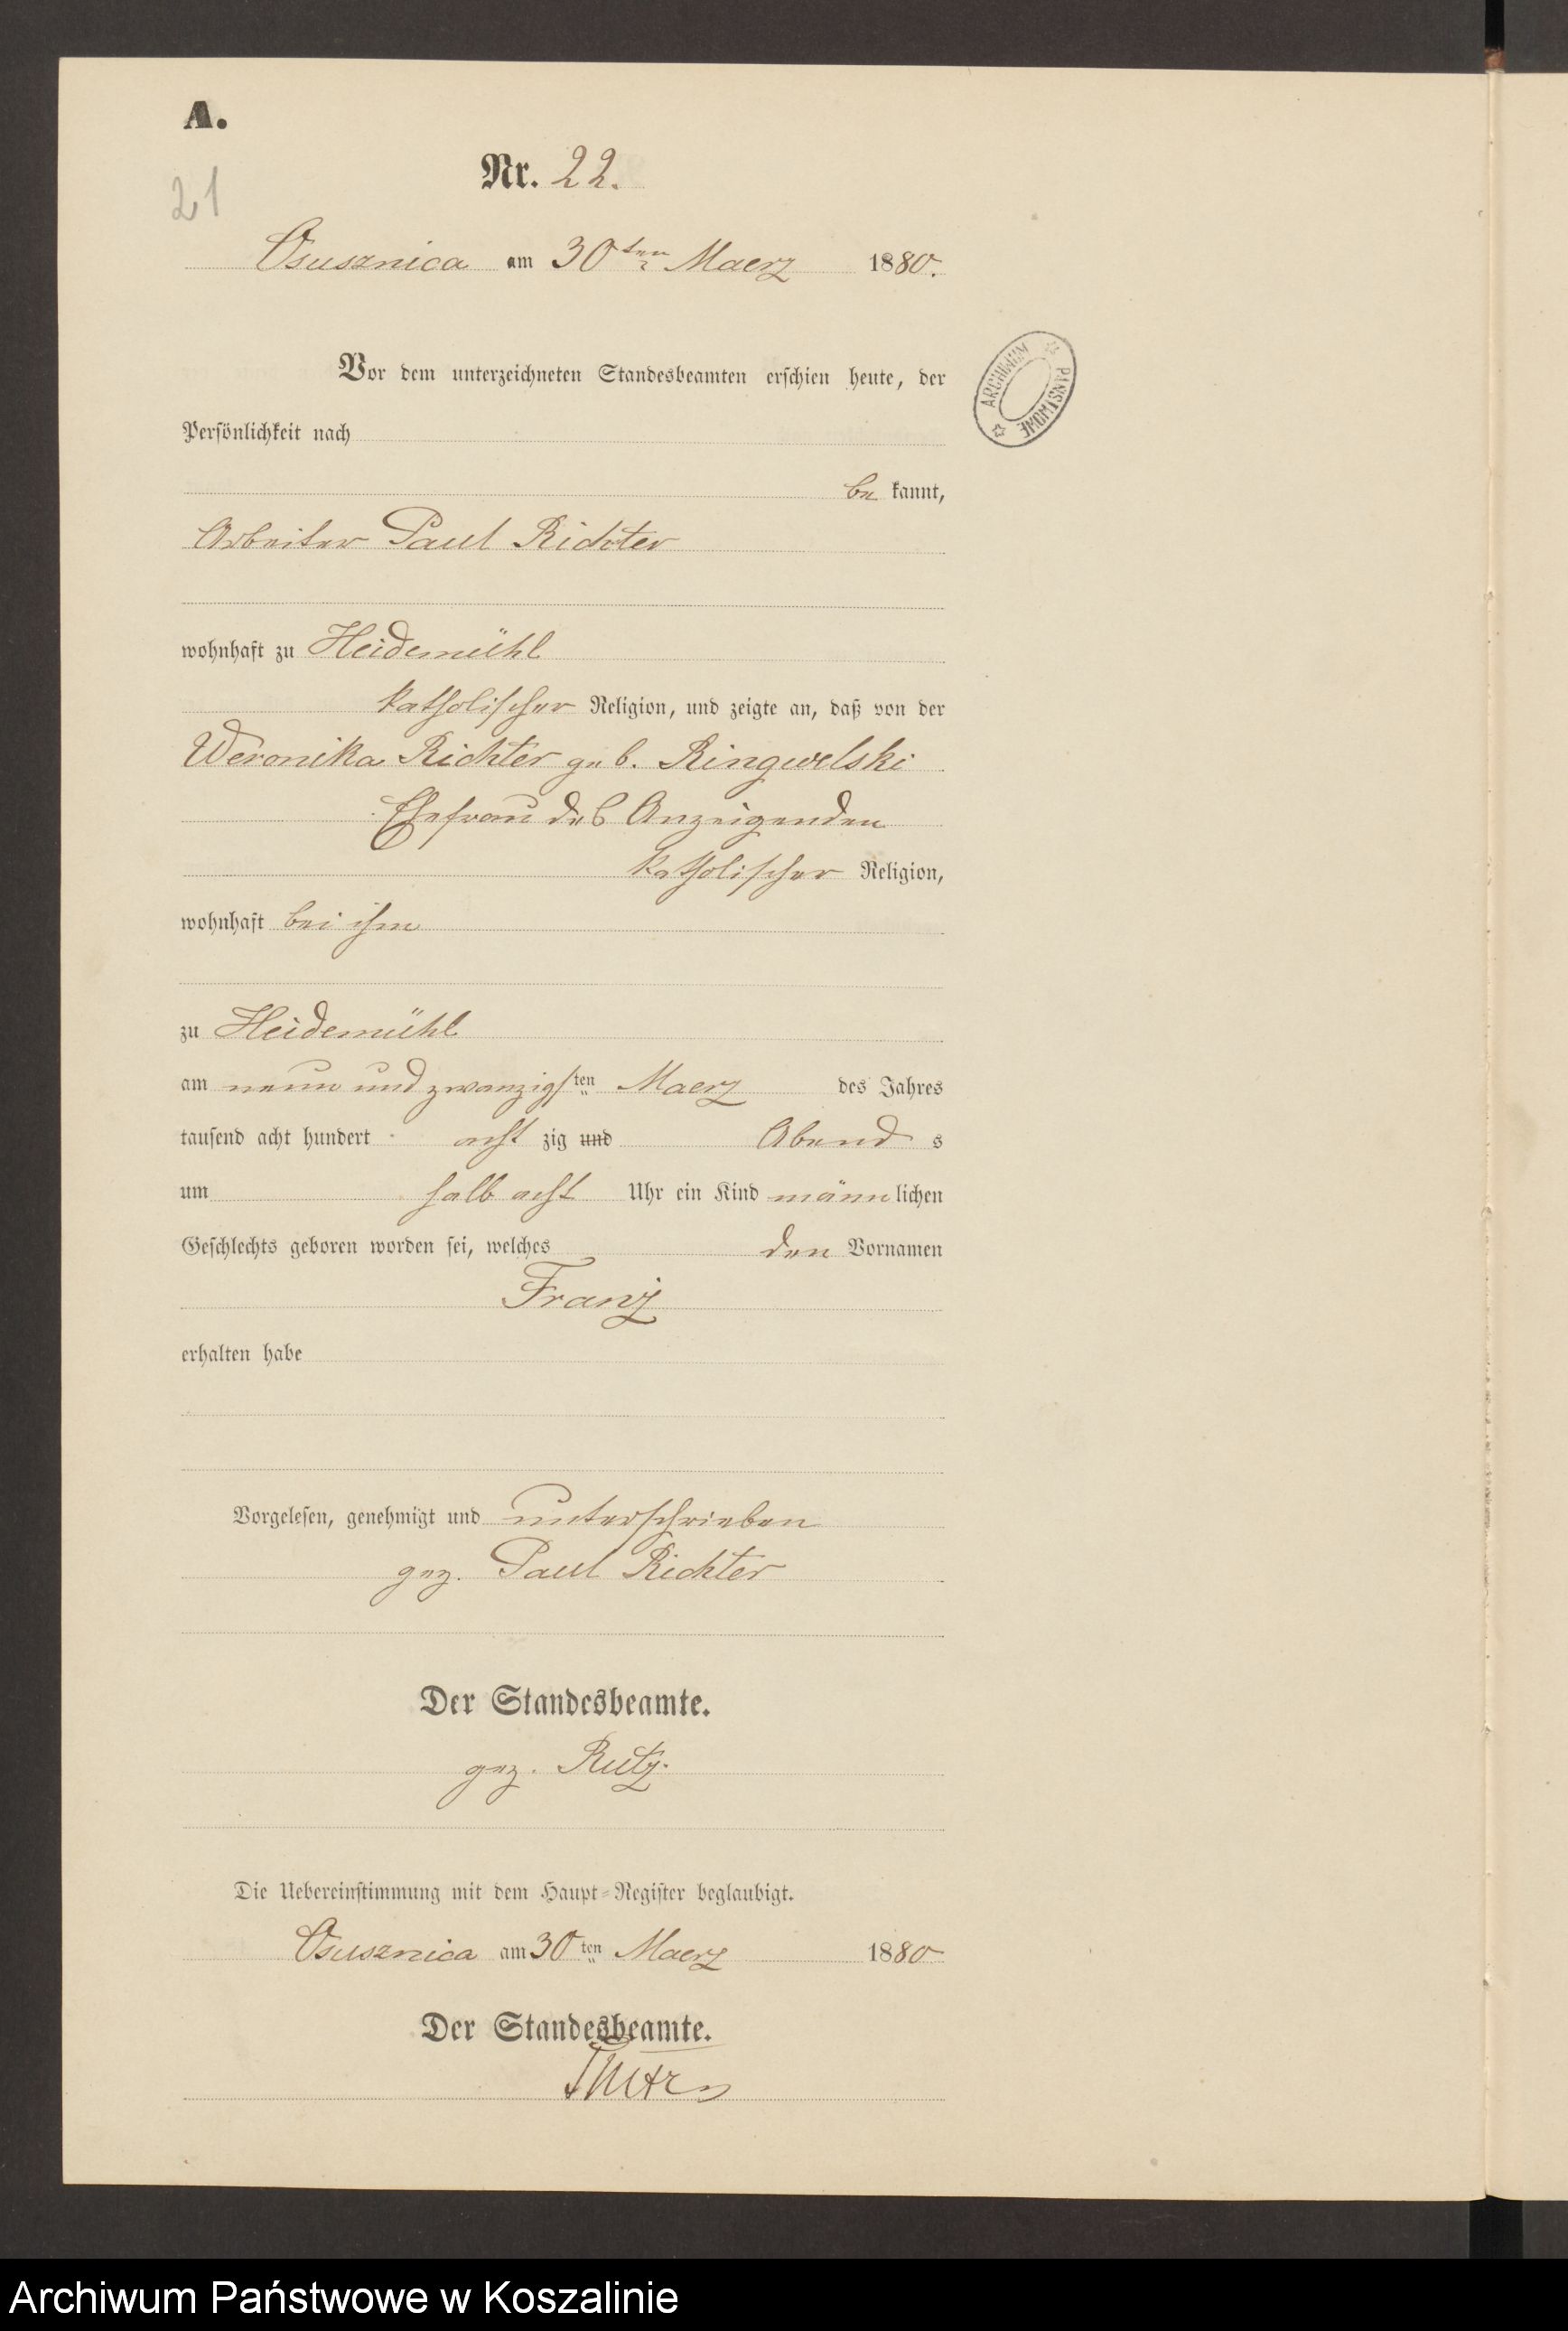 A.
Nr. 22.
21
Osusznica am 30ten Maerz 1880.
ARCHIWUM PAŃSTWOWE
Vor dem unterzeichneten Standesbeamten erschien heute, der
Persönlichkeit nach
be kannt,
Arbeiter Paul Richter
wohnhaft zu Heidemühl
katholischer Religion, und zeigte an, daß von der
Weronika Richter geb. Ringwelski
Ehefrau des Anzeigenden
katholischer Religion,
wohnhaft bei ihm
zu Heidemühl
am neun und zwanzigsten Maerz des Jahres
tausend acht hundert acht zig und Abend s
um halb acht Uhr ein Kind männlichen
Geschlechts geboren worden sei, welches den Vornamen
Franz
erhalten habe
Vorgelesen, genehmigt und unterschrieben
gez. Paul Richter
Der Standesbeamte.
gez. Rutz.
Die Uebereinstimmung mit dem Haupt-Register beglaubigt.
Osusznica am 30ten Maerz 1880
Der Standesbeamte.
Archiwum Państwowe w Koszalinie